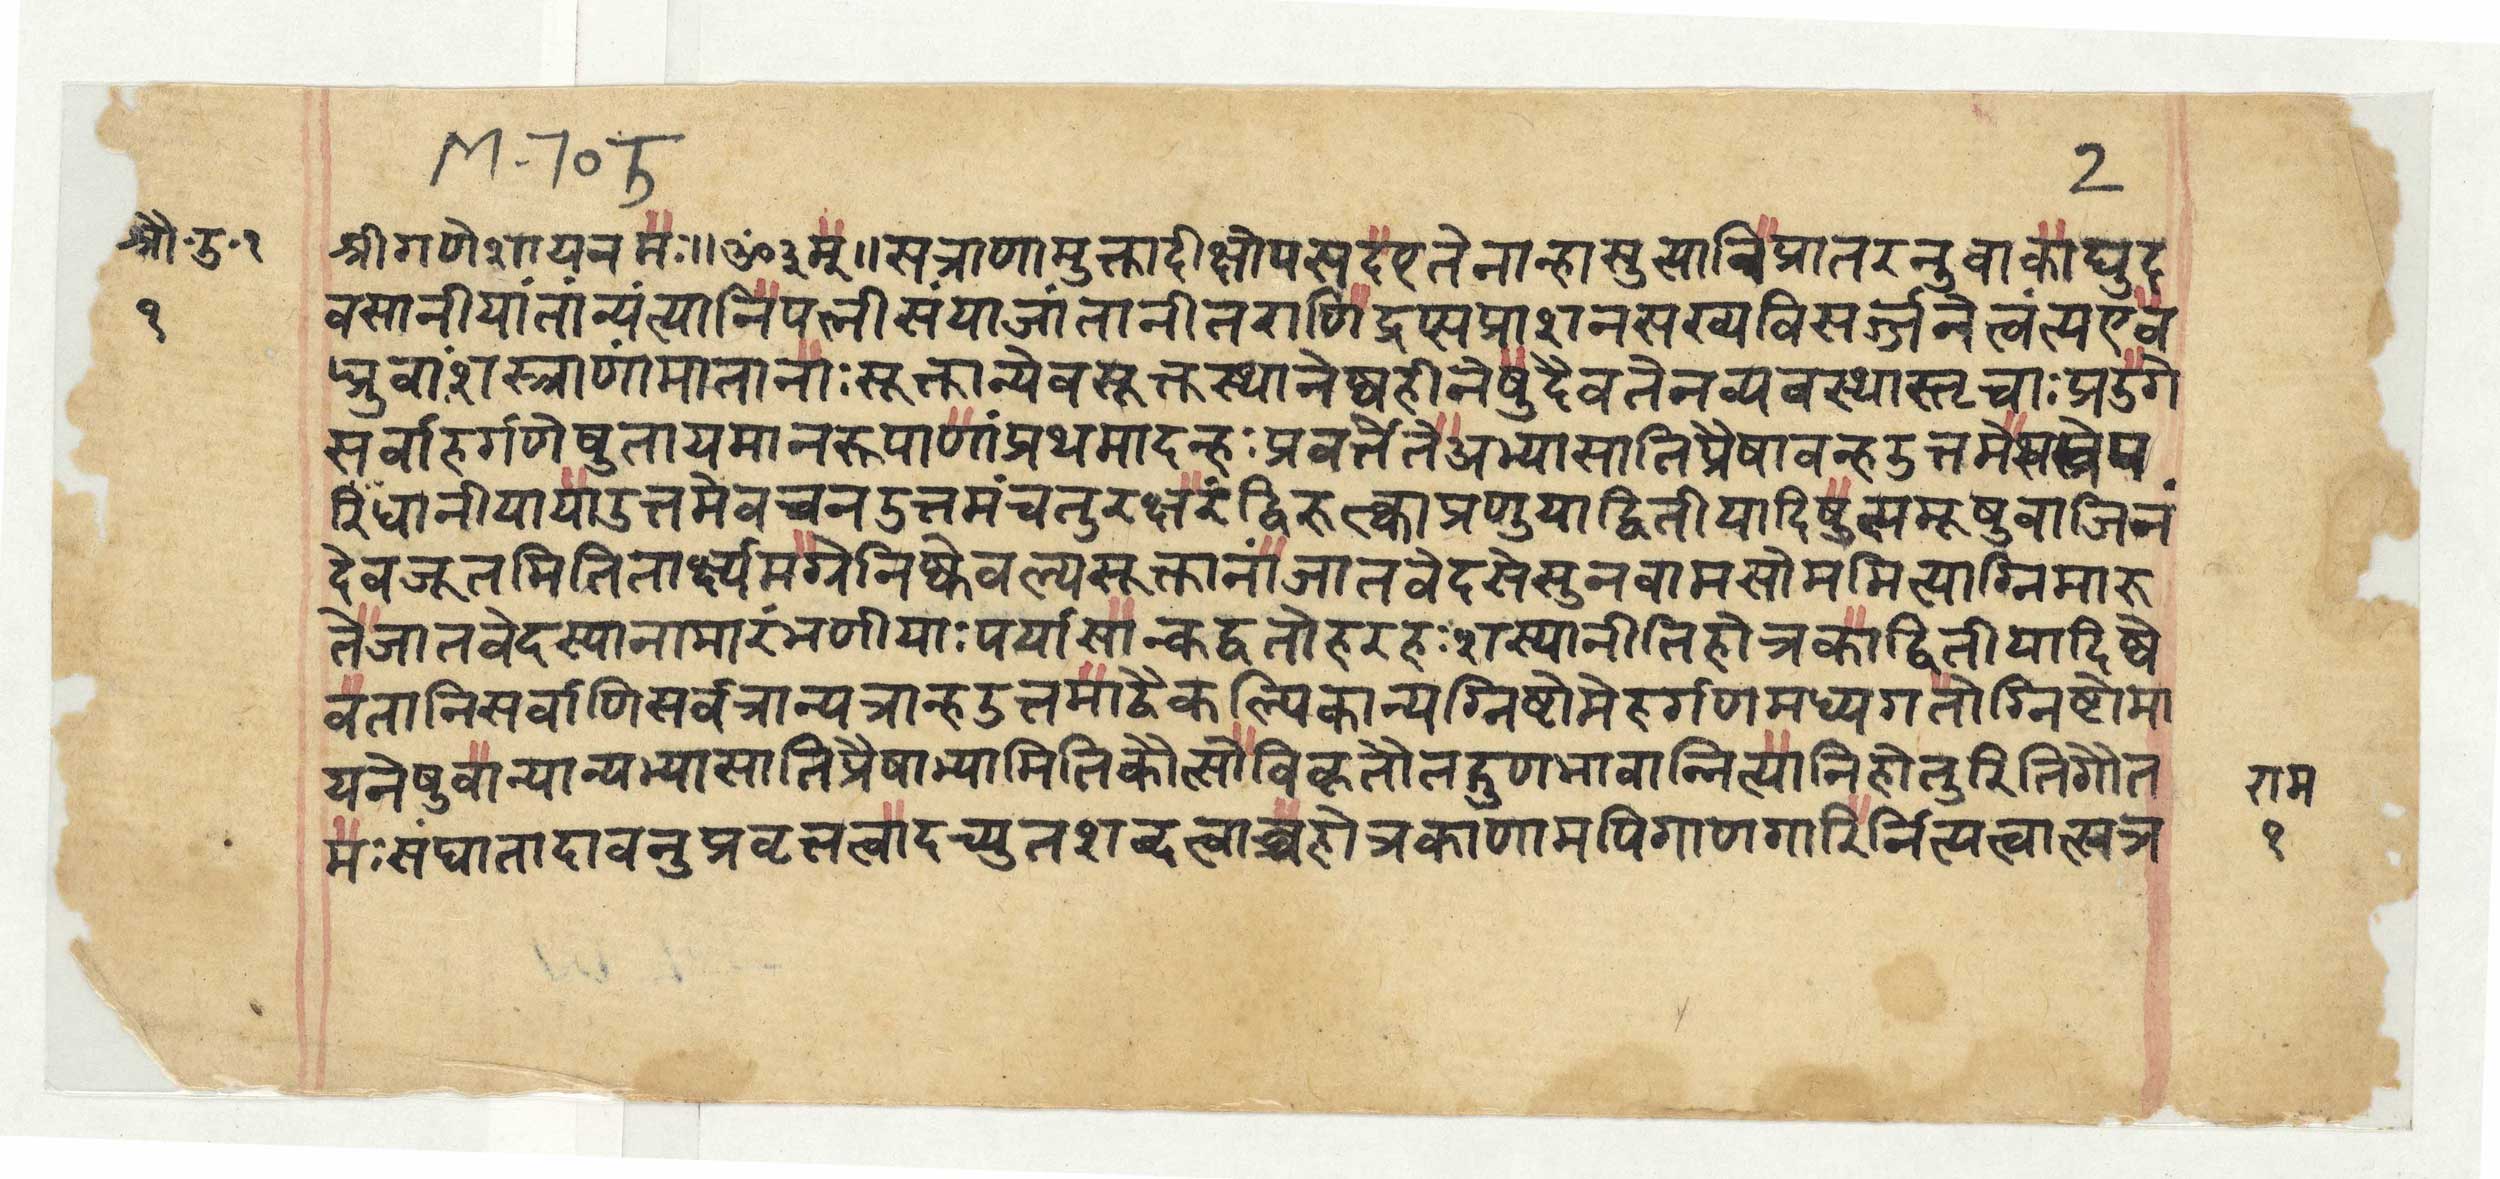 M-70 5
2
श्रौ.उ.१
१
श्रीगणेशायनमः॥ॐ३म्॥सत्राणामुक्तादीक्षोपसदएतेनान्हासुत्यानिप्रातरनुवाकाद्युद
वसानीयांतांन्यंत्यानिपत्नीसंयाजांतानीतराणिद्रप्सप्राशनसख्यविसर्जनेत्वंत्यएव
ध्रुवाःशस्त्राणामातानाःसूक्तान्येवसूक्तस्थानेष्वहीनेषुदैवतेनव्यवस्थास्तृचाःप्रउगे
सर्वाहर्गणेषुतायमानरूपाणांप्रथमादन्हःप्रवर्त्तेतेअभ्यासातिप्रैषावन्हउत्तमे
रिधानीयायाउत्तमेवचनउत्तमंचतुरक्षरंद्विरुक्त्वाप्रणुयाद्वितीयादिषुत्यमूषुवाजिनं
देवजूतमितितार्क्ष्यमग्रेनिष्केवल्यसूक्तानांजातवेदसेसुनवामसोममित्याग्निमारु
तेजातवेदस्यानामारंभणीयाःपर्यासान्कद्वतोहरहःशस्यानीतिहोत्रकाद्वितीयादिष्वे
वतानिसर्वाणिसर्वत्रान्यत्रान्हउत्तमाद्वैकल्पिकान्यग्निष्टोमेहर्गणमध्यगतोग्निष्टोमा
यनेषुवान्यान्यभ्यासातिप्रैषाभ्यामितिकौत्सोविकृतौतद्गुणभावान्नित्यानिहोतुरितिगौत
मःसंघातादावनुप्रवृत्तत्वादच्युतशब्दत्वाच्चहोत्रकाणामपिगाणगारिर्नित्यत्वात्सत्र
राम
१